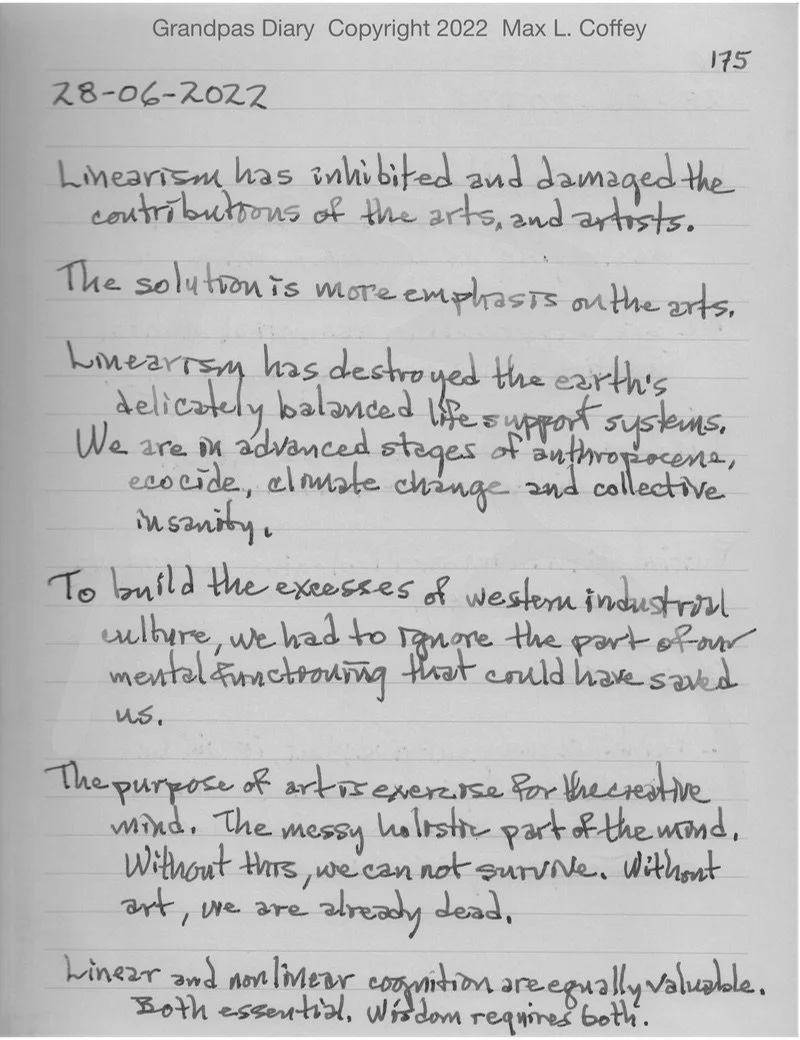 Grandpas Diary Copyright 2022 Max L. Coffey
175
28-06-2022
Linearism has inhibited and damaged the
contributions of the arts, and artists.
The solution is more emphasis on the arts.
Linearism has destroyed the earth's
delicately balanced life support systems.
We are in advanced stages of anthropocene,
ecocide, climate change and collective
insanity.
To build the excesses of western industrial
culture, we had to ignore the part of our
mental functioning that could have saved
us.
The purpose of art is exercise for the creative
mind. The messy holistic part of the mind.
Without this, we can not survive. Without
art, we are already dead.
Linear and nonlinear cognition are equally valuable.
Both essential. Wisdom requires both.